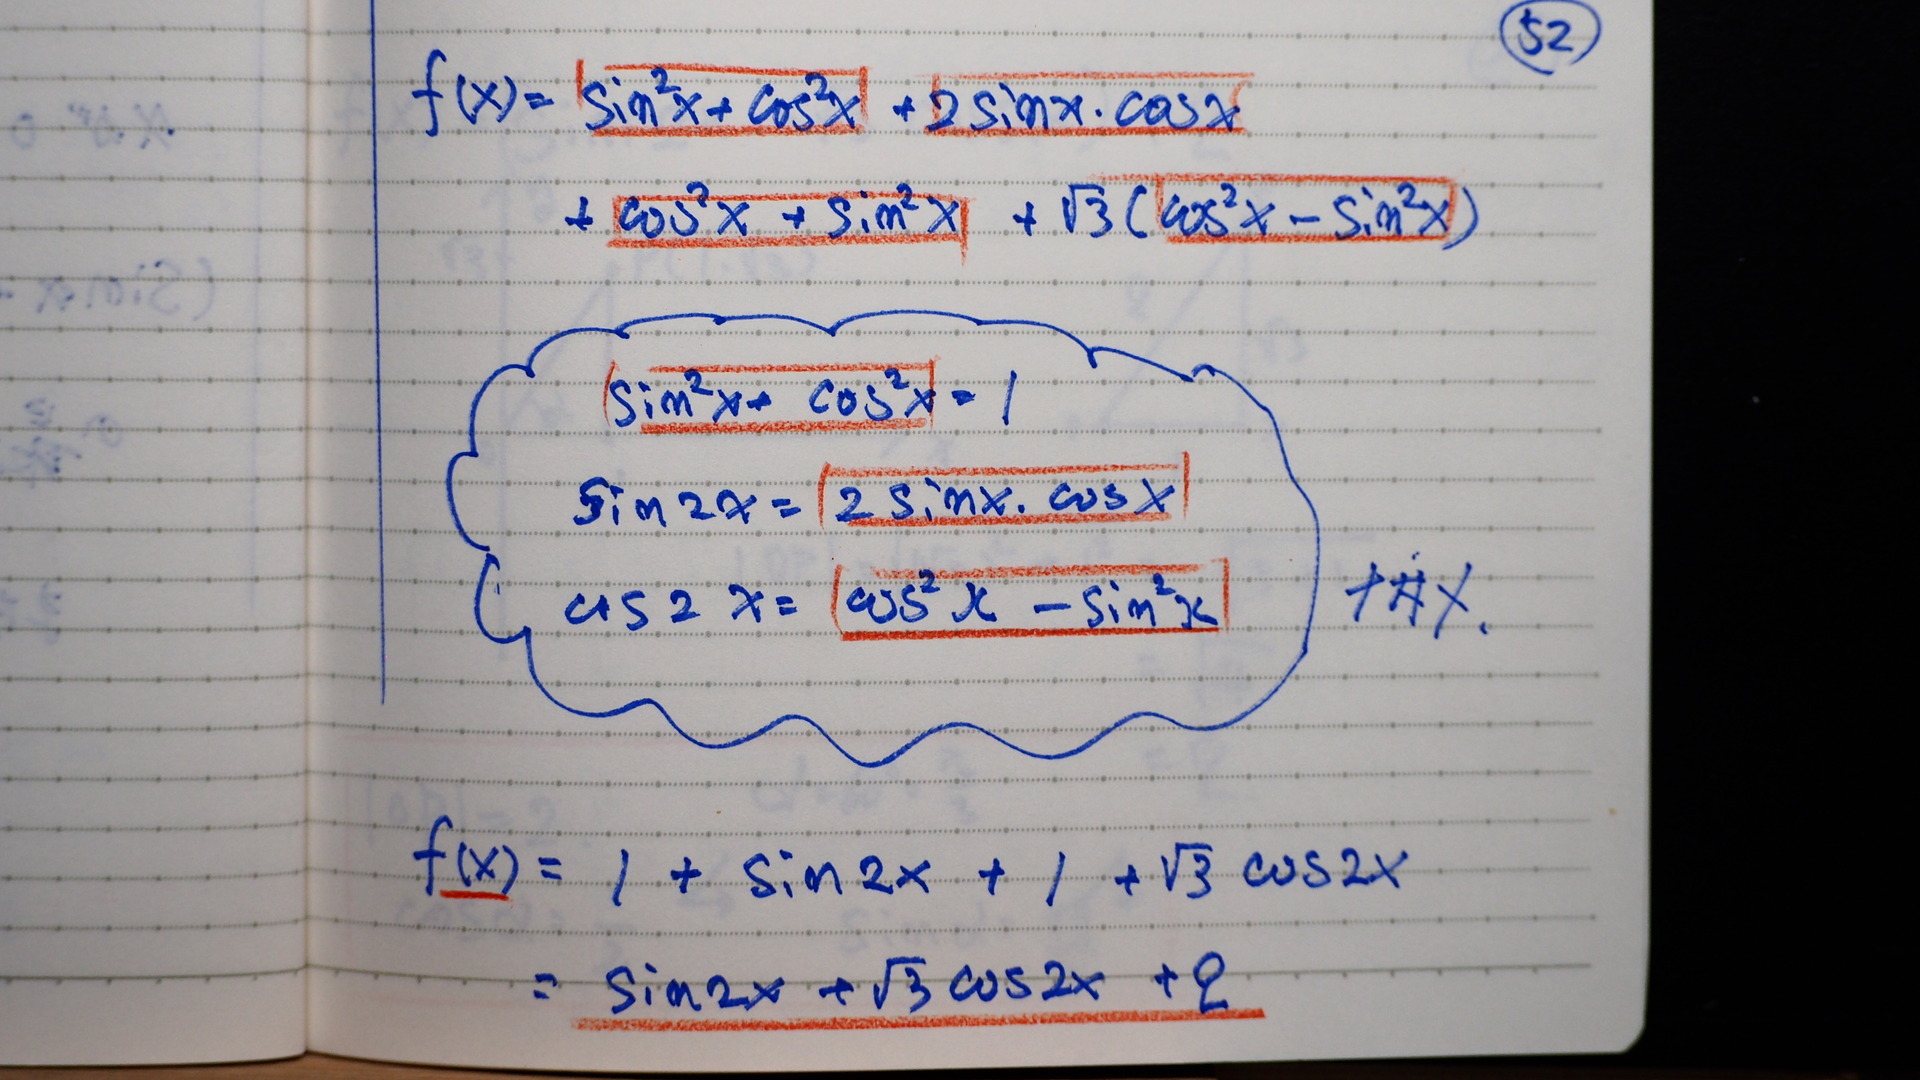 52
f(x) = sin²x + cos²x + 2 sinx · cosx
+ cos²x + sin²x + √3 (cos²x − sin²x)
sin²x + cos²x = 1
sin 2x = 2 sinx · cosx
cos 2x = cos²x − sin²x
f(x) = 1 + sin 2x + 1 + √3 cos 2x
= sin 2x + √3 cos 2x + 2